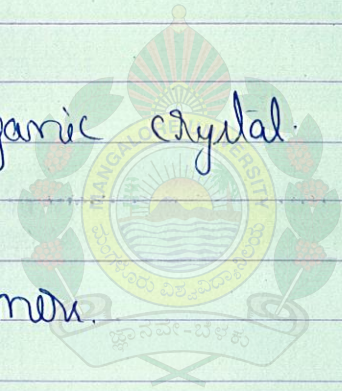 ganic crystal.
MANGALORE UNIVERSITY
ಮಂಗಳೂರು ವಿಶ್ವವಿದ್ಯಾನಿಲಯ
ಜ್ಞಾನವೇ-ಬೆಳಕು